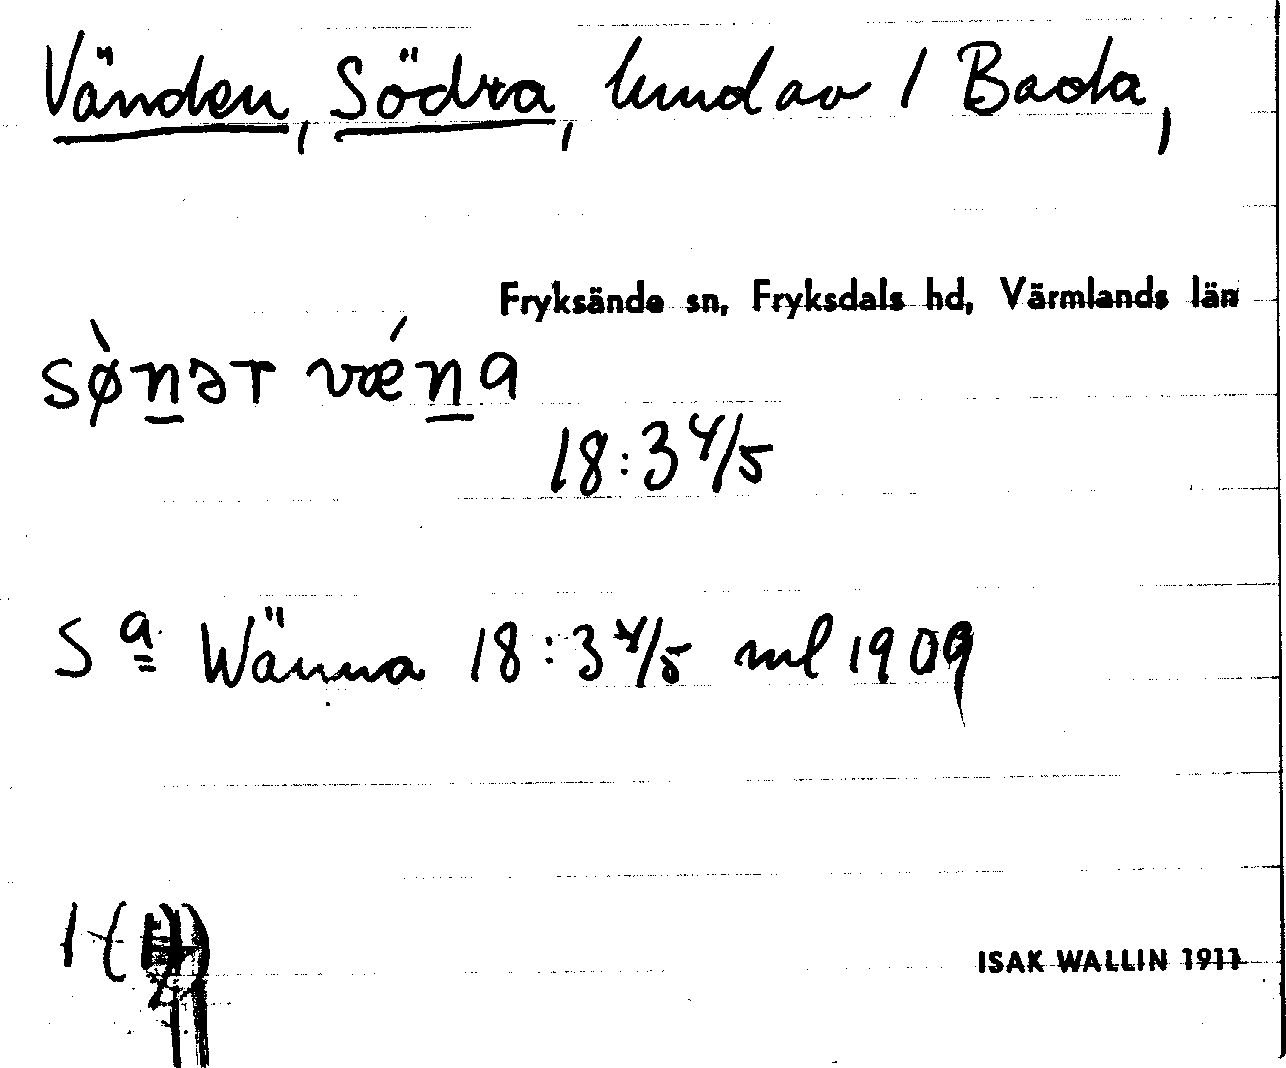 Vänden, Södra, hmdav 1 Bada,
Fryksände sn, Fryksdals hd, Värmlands län
sø̀n̲əт vǽn̲a
18:3 4/5
Sª Wänna 18:3 4/5 ml 1909
1 (
ISAK WALLIN 1911